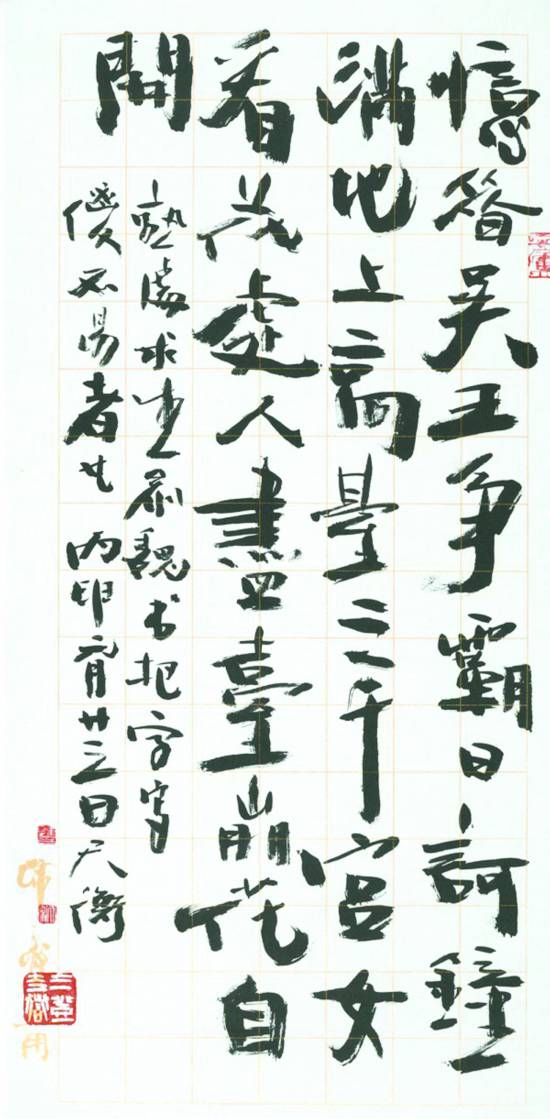 憶昔吳王爭霸日訶鐘
滿地上高臺三千宮女
看花處人盡臺崩花自
開
熟處求生 魏书把字寫
傻不易者也丙申 廿三日天衡